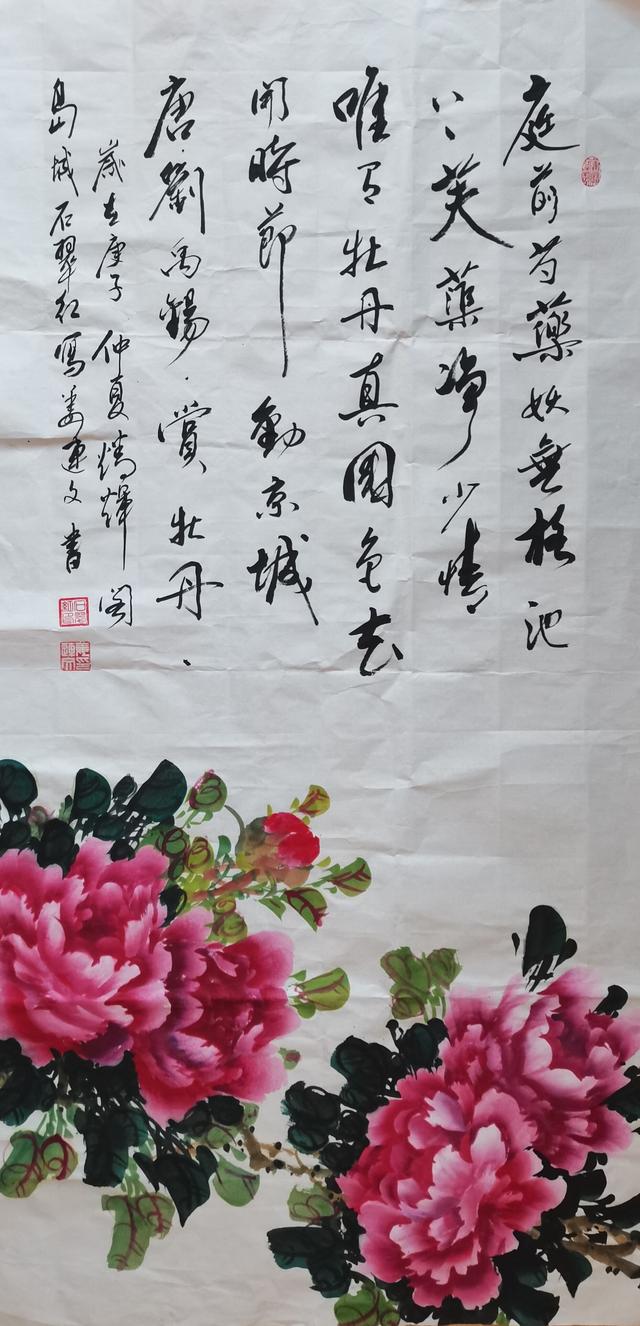 庭前芍藥妖無格池
上芙蕖淨少情
唯有牡丹真國色花
開時節動京城
唐劉禹錫·賞牡丹、
歲在庚子仲夏輝閣
島城石翠紅寫文書